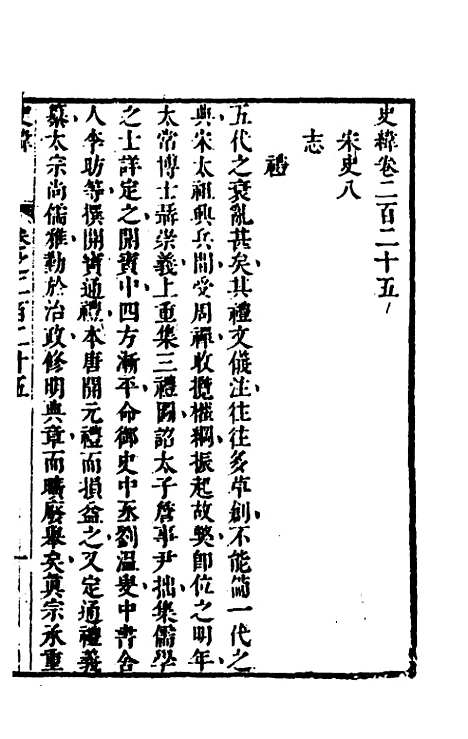 史緯卷二百二十五
宋史八
志
禮
五代之衰亂甚矣其禮文儀注往往多草創不能備一代之
典宋太祖興兵間受周禪收攬權綱振起故弊卽位之明年
太常博士聶崇義上重集三禮圖詔太子詹事尹拙集儒學
之士詳定之開寶中四方漸平命御史中丞劉溫叟中書舍
人李昉等撰開寶通禮本唐開元禮而損益之又定通禮義
纂太宗尚儒雅勤於治政修明典章而曠廢舉矣眞宗承重
史緯 卷之二百二十五 一